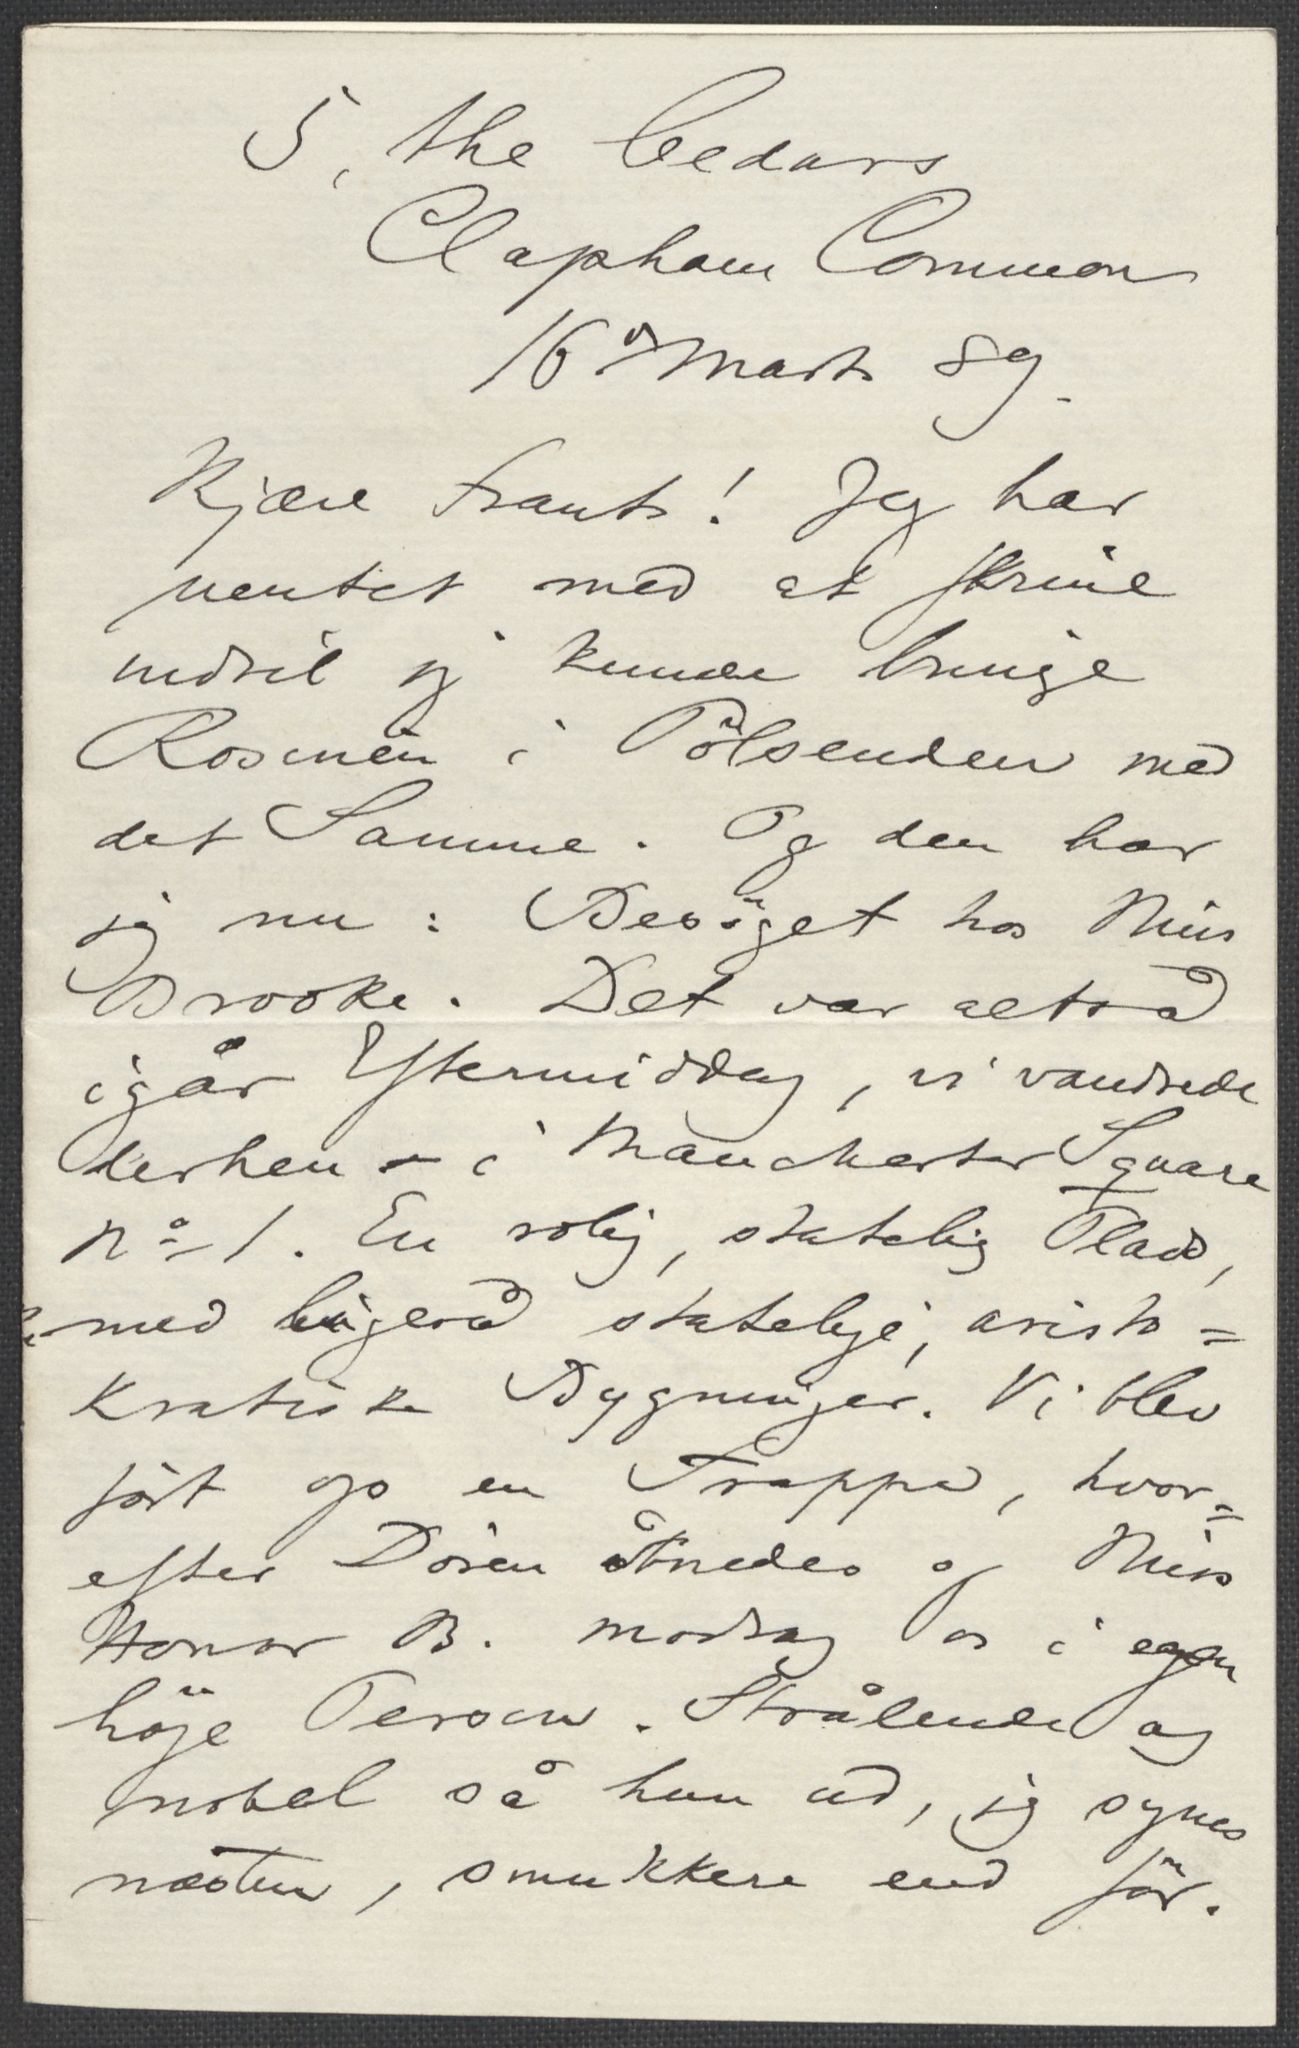 5, the Cedars
Clapham Common
16d Marts 89.
Kjære Frants! Jeg har
ventet med at skrive
indtil jeg kunde bringe
Rosinen i Pölsenden med
det Samme. Og den har
jeg nu: Besöget hos Miss
Brooke. Det var altså
igår Eftermiddag, vi vandrede
derhen - i Manchester Square
No 1. En rolig, statelig Plads,
med ligeså statelige, aristo=
kratiske Bygninger. Vi blev
fört op en Trappe, hvor=
efter Dören åbnedes og Miss
Honor B. modtog os i egen
höje Person. Strålende og
nobel så hun ud, jeg synes
næsten, smukkere end för.